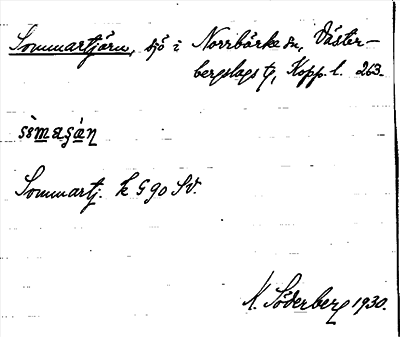 Sommartjärn, sjö i Norrbärke sn, Väster-
bergslags tg, Kopp. l. 263.
Sommartj. k G 90 SV.
N. Söderberg 1930.